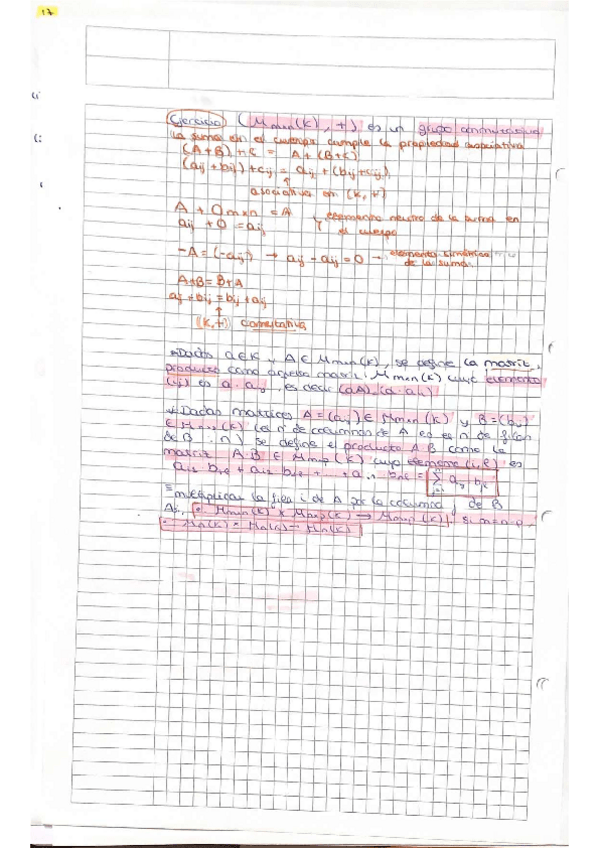 17
Ejercicio (Mmxn(K), +) es un grupo conmutativo
La suma en el cuerpo cumple la propiedad asociativa
(A+B)+C = A+(B+C)
(aij+bij)+cij = aij+(bij+cij)
↑
asociativa en (K,+)
A + Omxn = A
aij + 0 = aij
elemento neutro de la suma en
el cuerpo
-A = (-aij) → aij - aij = 0 → elemento simétrico
de la suma
A+B = B+A
aij+bij = bij+aij
↑
(K,+) conmutativa
Dados a∈K y A∈Mmxn(K), se define la matriz
producto como aquella matriz Mmxn(K) cuyo elemento
(i,j) es a·aij, es decir (aA)=(a·aij)
Dadas matrices A=(aij)∈Mmxn(K) y B=(bij)
(el nº de columnas de A es el nº de filas
de B, n) se define el producto A·B como la
matriz A·B ∈ Mmxp(K) cuyo elemento (i,l) es
multiplicar la fila i de A por la columna j de B
Así, · Mmxn(K) x Mnxp(K) → Mmxp(K)
· Mn(K) x Mn(K) → Mn(K)